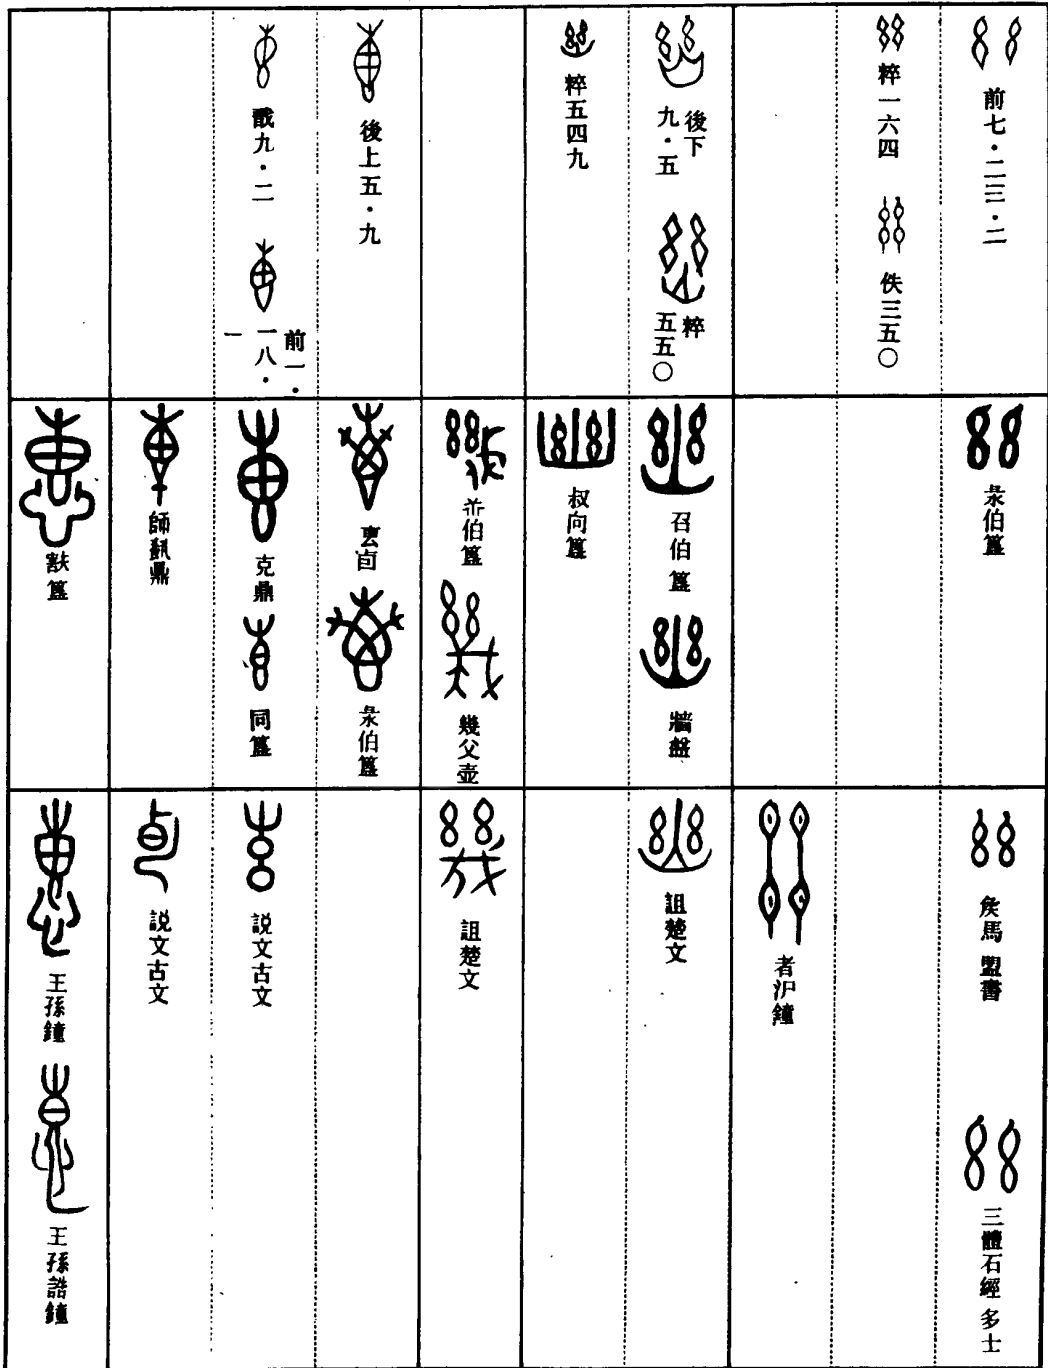 前七·二三·二
粹一六四
佚三五〇
後下九·五
粹五五〇
粹五四九
後上五·九
戩九·二
前一·一八·一
彔伯簋
召伯簋
牆盤
叔向簋
伯簋
幾父壺
彔伯簋
克鼎
同簋
師𩛥鼎
㝬簋
矦馬盟書
三體石經 多士
者沪鐘
詛楚文
詛楚文
説文古文
説文古文
王孫鐘
王孫誥鐘